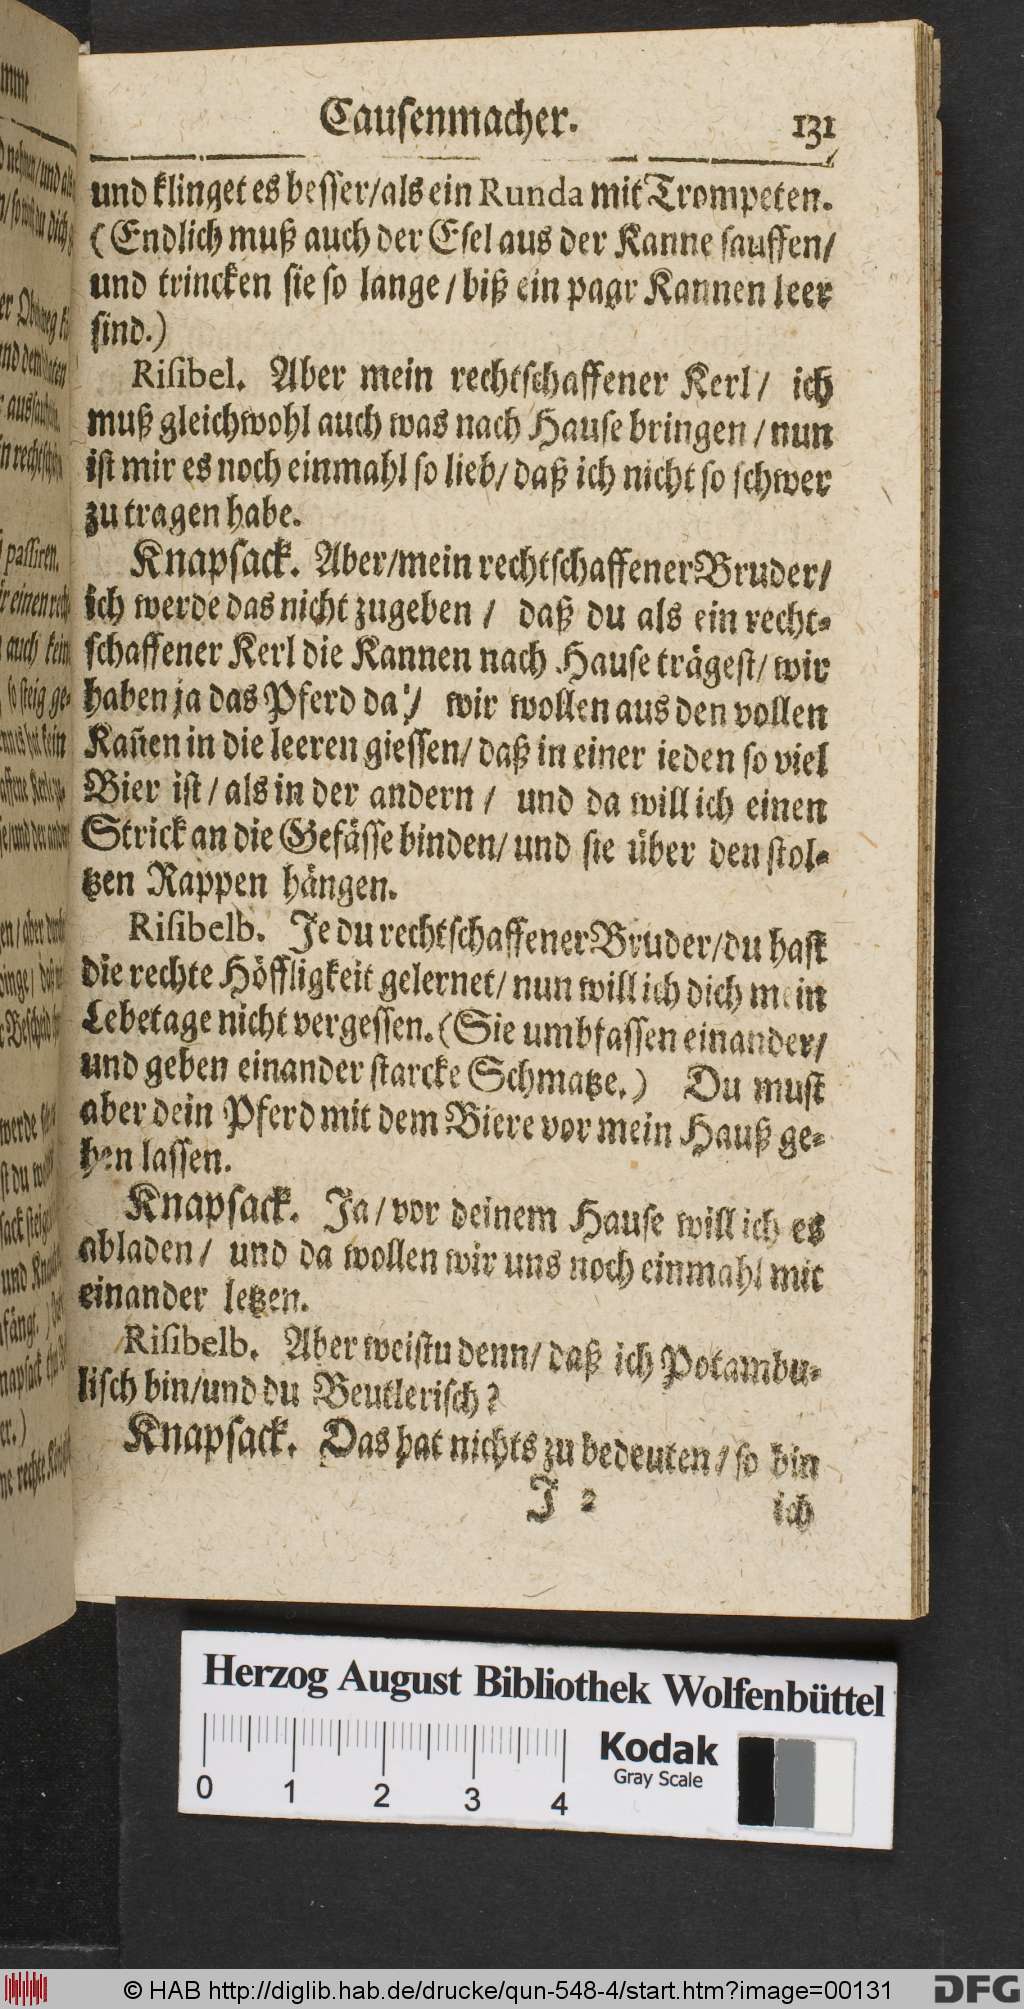 Causenmacher. 131
und klinget es besser/als ein Runda mit Trompeten.
(Endlich muß auch der Esel aus der Kanne sauffen/
und trincken sie so lange/biß ein paar Kannen leer
sind.)
Risibel. Aber mein rechtschaffener Kerl/ ich
muß gleichwohl auch was nach Hause bringen/nun
ist mir es noch einmahl so lieb/daß ich nicht so schwer
zu tragen habe.
Knapsack. Aber/mein rechtschaffener Bruder/
ich werde das nicht zugeben/ daß du als ein recht-
schaffener Kerl die Kannen nach Hause trägest/wir
haben ja das Pferd da!/ wir wollen aus den vollen
Kañen in die leeren giessen/daß in einer ieden so viel
Bier ist/als in der andern/ und da will ich einen
Strick an die Gefässe binden/und sie über den stol-
tzen Rappen hängen.
Risibelb. Je du rechtschaffener Bruder/du hast
die rechte Höffligkeit gelernet/nun will ich dich mein
Lebetage nicht vergessen.(Sie umbfassen einander/
und geben einander starcke Schmatze.) Du must
aber dein Pferd mit dem Biere vor mein Hauß ge-
hen lassen.
Knapsack. Ja/vor deinem Hause will ich es
abladen/ und da wollen wir uns noch einmahl mit
einander letzen.
Risibelb. Aber weistu denn/daß ich Potambu-
lisch bin/und du Beutlerisch?
Knapsack. Das hat nichts zu bedeuten/so bin
J 2 ich
Herzog August Bibliothek Wolfenbüttel
0 1 2 3 4
Kodak
Gray Scale
© HAB http://diglib.hab.de/drucke/qun-548-4/start.htm?image=00131
DFG